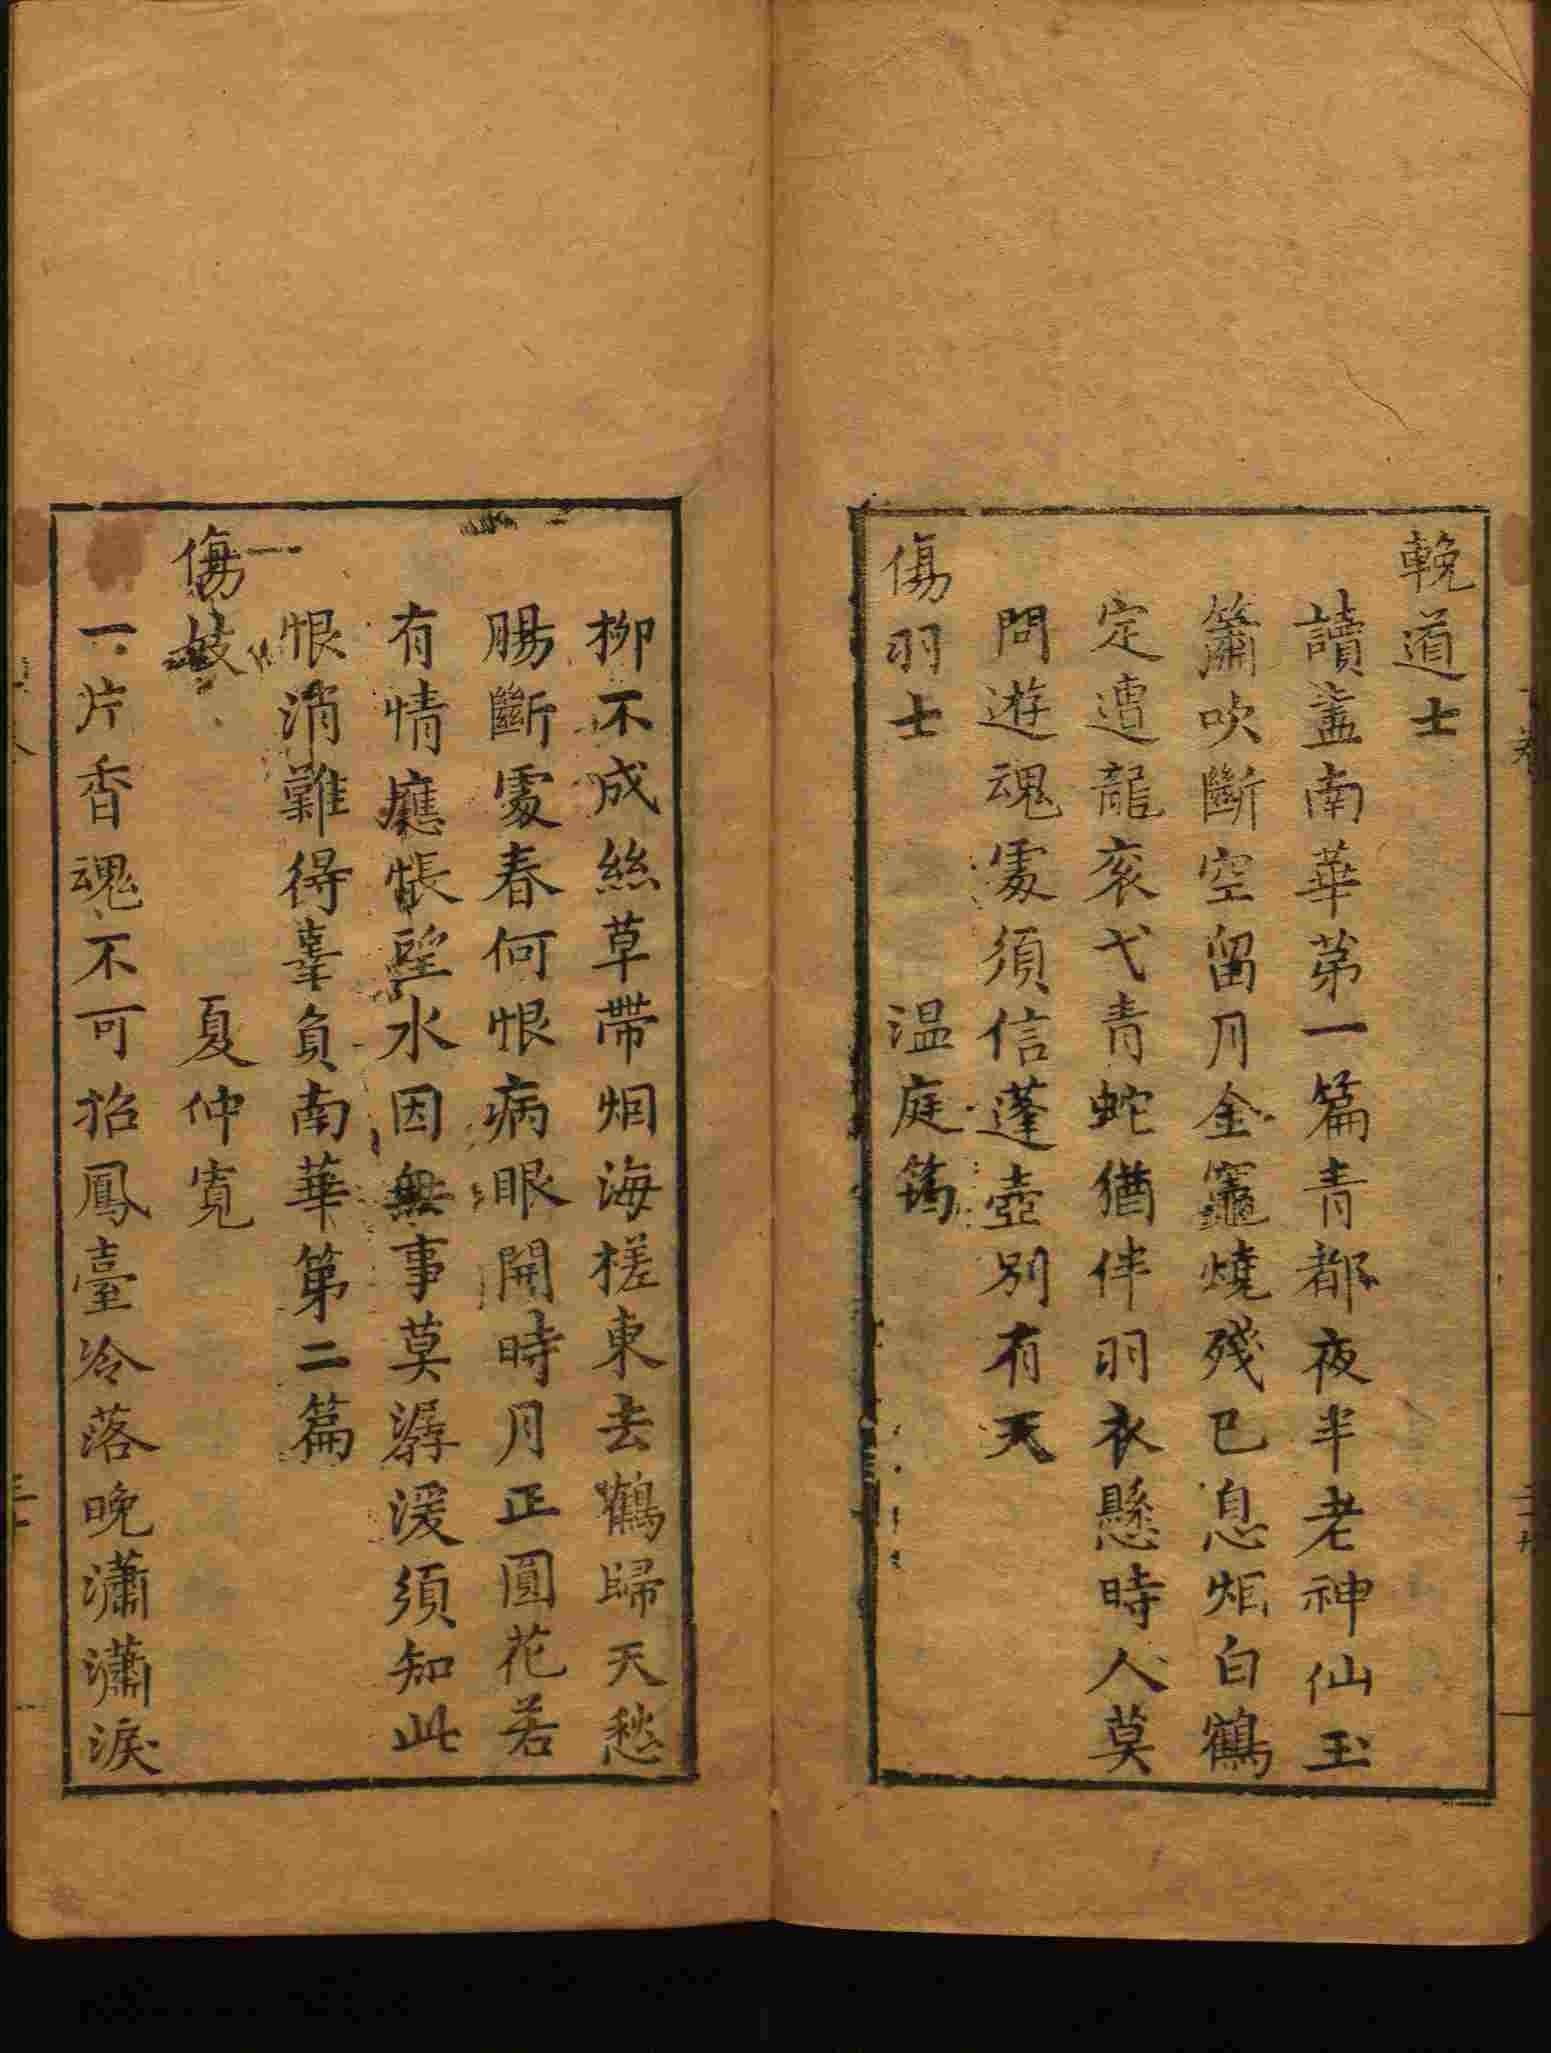 輓道士
讀盡南華第一篇青都夜半老神仙玉
簫吹斷空留月金竈燒殘已息烟白鶴
定遭龍衮弋青蛇猶伴羽衣懸時人莫
問遊魂處須信蓬壺別有天
傷羽士 温庭筠
柳不成絲草帶烟海槎東去鶴歸天愁
腸斷處春何恨病眼開時月正圓花若
有情應悵望水因無事莫潺湲須知此
恨消難得辜負南華第二篇
傷妓 夏仲寛
一片香魂不可招鳳臺冷落晚瀟瀟淚